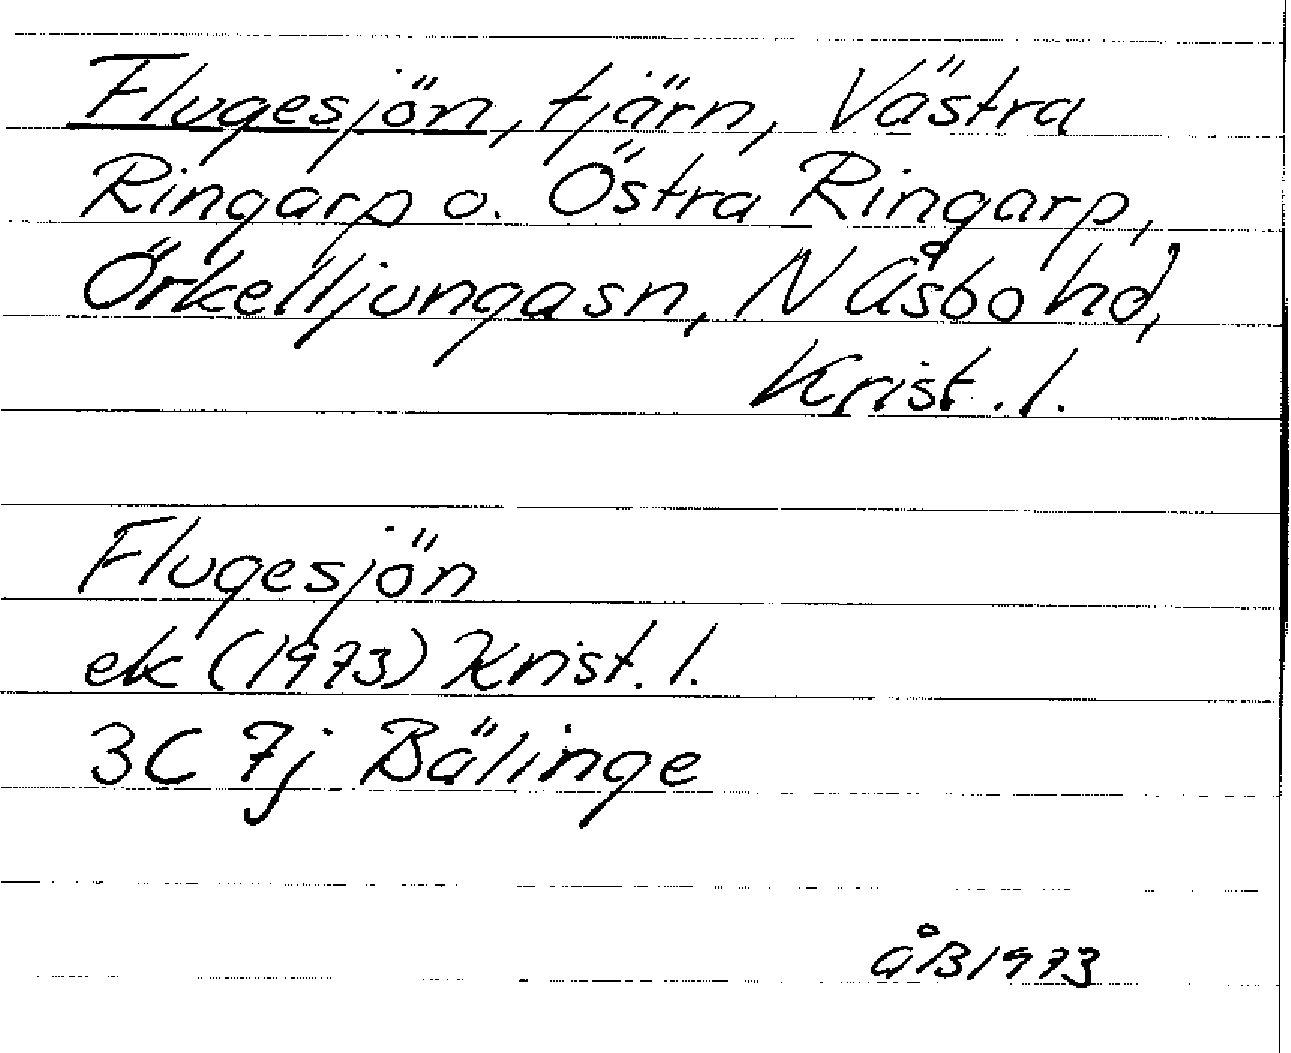 Flugesjön, tjärn, Västra
Ringarp o. Östra Ringarp,
Örkelljungasn, N Åsbo hd,
Krist. l.
Flugesjön
ek (1973) Krist. l.
3C 7j Bälinge
ÅB 1973